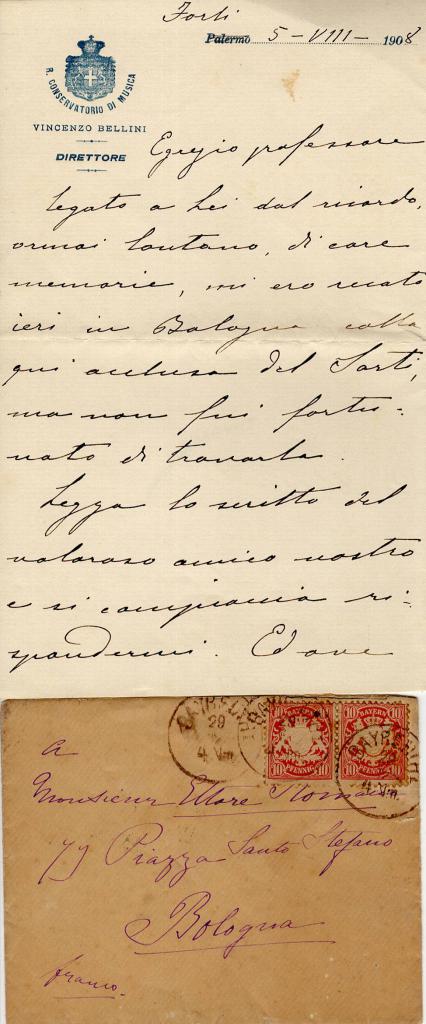 Forlì
Palermo 5 - VIII - 1908
R. CONSERVATORIO DI MUSICA
VINCENZO BELLINI
DIRETTORE
Egregio professore
legato a Lei dal ricordo,
ormai lontano, di care
memorie, mi ero recato
ieri in Bologna colla
qui acclusa del Sarti,
ma non fui fortu-
nato di trovarla.
Legga lo scritto del
valoroso amico nostro
e si compiaccia ri-
spondermi. Ed ove
BAYREUTH
29
4 Vm.
BAYERN
10 10
PFENNIG
BAYERN
10 10
PFENNIG
BAYREUTH
29
4 Vm.
a
Monsieur Ettore
79 Piazza Santo Stefano
Bologna
franco.